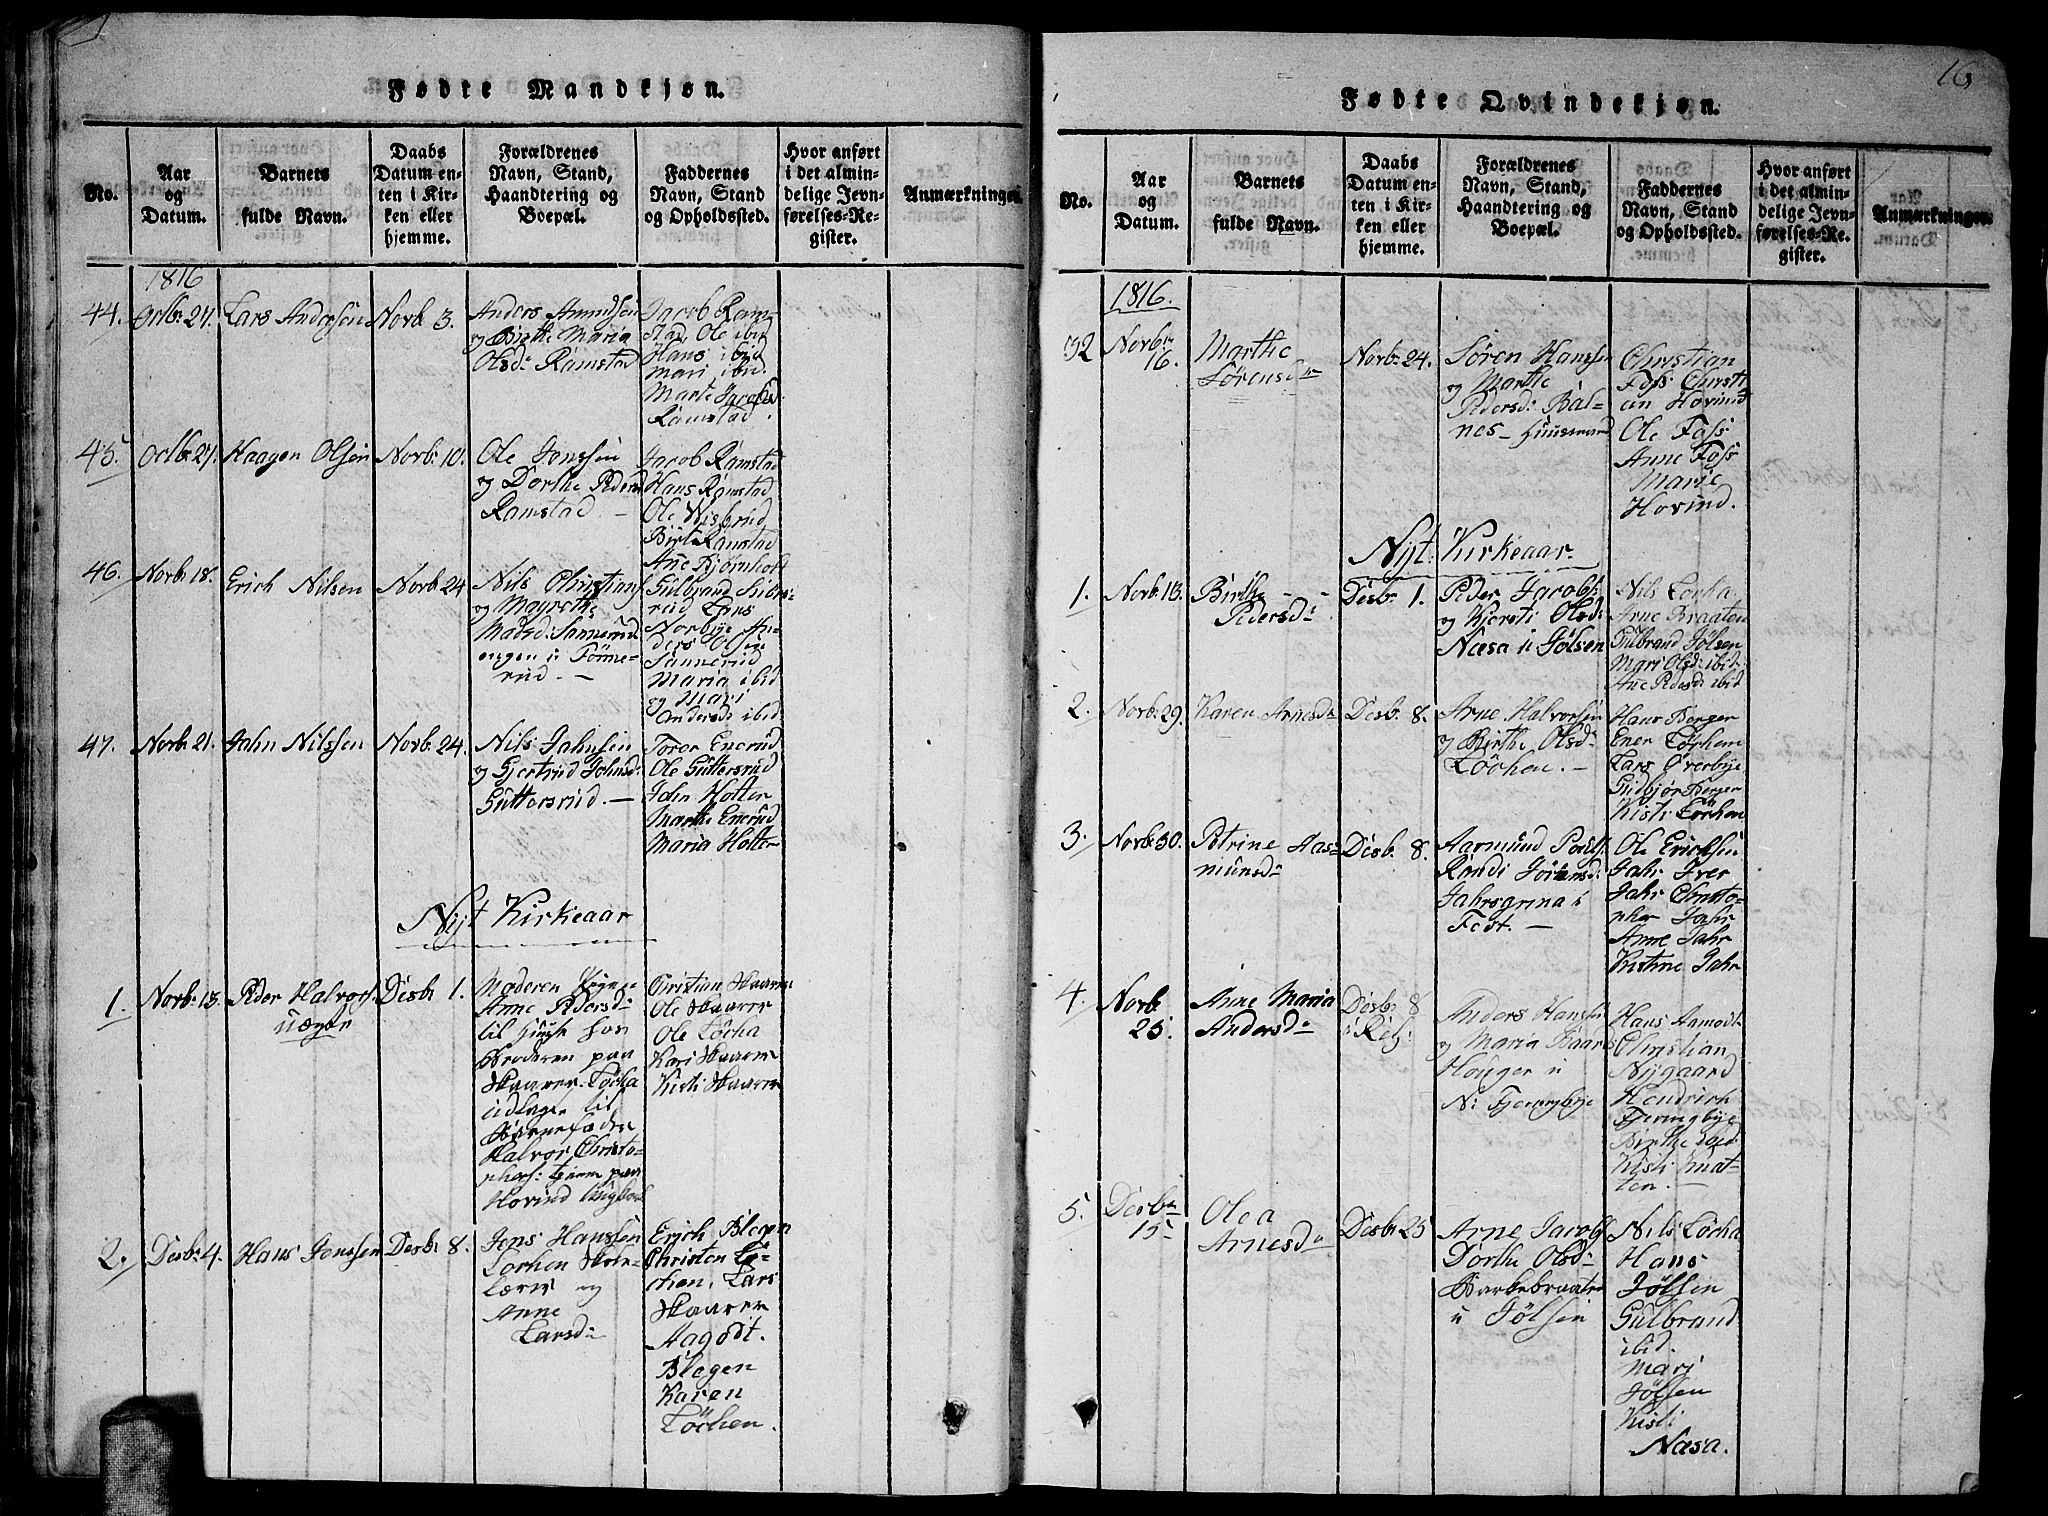 Fødte Mandkjøn.
No.
Aar
og
Datum.
Barnets
fulde Navn.
Daabs
Datum en-
ten i Kir-
ken eller
hjemme.
Forældrenes
Navn, Stand,
Haandtering og
Boepæl.
Faddernes
Navn, Stand
og Opholdssted.
Hvor anført
i det almin-
delige Jevn-
førelses-Re-
gister.
Anmærkninger
1816
44.
Octbr: 27.
Lars Andersen
Novb: 3.
Anders Amundsen
og Birthe Maria
Olsd: Ramstad
Jacob Ram-
stad, Ole ibid
Hans ibid
Mari ibid.
Marte Jacobsd
Ramstad.
45.
Octb: 27.
Haagen Olsen
Novb: 10.
Ole Jonssen
og Dorthe Peders
Ramstad. –
Jacob Ramstad
Hans Ramstad
Ole Nisbrud
Birte Ramstad
Ane Bjørnholt
46.
Novb: 18.
Erich Nilsen
Novb: 24
Nils Christians
og Magrethe
Madsd: Sannerud
engen u: Tønne-
rud. –
Gulbrand
rud Lars
Norbye An-
ders Olsen
Sannerud
Maria ibid
og Mari
Andersd: ibid
47.
Novb: 21.
Jahn Nilssen
Novb: 24.
Nils Jahnsen
og Gjertrud Johnsd:
Guttersrud. –
Toror Enerud
Ole Guttersrud
John Holter
Marthe Enerud
Maria Holter
Nyt Kirkeaar
1.
Novb: 13.
Peder Halvors.
uægte
Desb: 1.
Moderen Pigen
Anne Pedersd:
til Huuse hos
Broderen paa
Skaarer Løcha
udlager til
Barnefader
Halvor Christo-
phers: tjener paa
Hovind
Cristian Skaarer
Ole Skaarer
Ole Løcha
Kari Skaarer
Kisti Skaarer
2.
Desb: 4.
Hans Jonssen
Desb: 8.
Jens Hanssen
Løchen Skole-
lærer og
Anne
Larsd:
Erich Blegen
Christen Lø-
chen, Lars
Skaarer
Aagodt.
Blegen
Karen
Løchen.
16
Fødte Qvindekjøn.
No.
Aar
og
Datum.
Barnets
fulde Navn.
Daabs
Datum en-
ten i Kir-
ken eller
hjemme.
Forældrenes
Navn, Stand,
Haandtering og
Boepæl.
Faddernes
Navn, Stand
og Opholdssted.
Hvor anført
i det almin-
delige Jevn-
førelses-Re-
gister.
Anmærkninger.
1816.
32
Novbr:
16.
Marthe
Sørensdr
Novb: 24.
Søren Hanssen
og Marthe
Pedersd: Bal-
nes – Huusmand
Christian
Foss Christi-
an Hovind
Ole Foss
Anne Foss
Marie
Hovind.
Nyt: Kirkeaar.
1.
Novb: 13.
Birthe
Pedersd:
Desb: 1.
Peder Jacobs:
og Kjersti Olsd:
Næsa u Jølsen
Nils Løcha
Arne Braaten
Gulbrand Jølsen
Mari Olsd: ibid
Ane Pedersd: ibid
2.
Novb: 29.
Karen Arnesd:
Desb: 8.
Arne Halvorsen
og Birthe Olsd:
Løchen. –
Hans Berger
Ener Løchen
Lars Overbye
Gudbjør Berger
Kisti Løchen
3.
Novb: 30.
Petrine Aas-
munsd:
Desb: 8.
Aasmund Pouls
Randi Jørensd:
Jahrsgrina i
Fedt. –
Ole Erichsen
Jahr Iver
Jahr Christo-
pher Jahr
Anne Jahr
Kistine Jahr
4.
Novb
25.
Anne Maria
Andersd:
Desb: 8
i Relj:
Anders Hansen
og Maria
Houger u
N: Fjeringbye
Hans Aamodt
Christian
Nygaard
Hendrich
Fjeringbye
Birthe ibid
Kisti Smat-
ten.
5.
Desbr
15
Olea
Arnesdr
Desb: 25
Arne Jacobs
Dorthe Olsd:
Barkebraaten
u Jølsen
Nils Løcha
Hans
Jølsen
Gulbrand
ibid.
Mari
Jølsen
Kisti
Næsa.